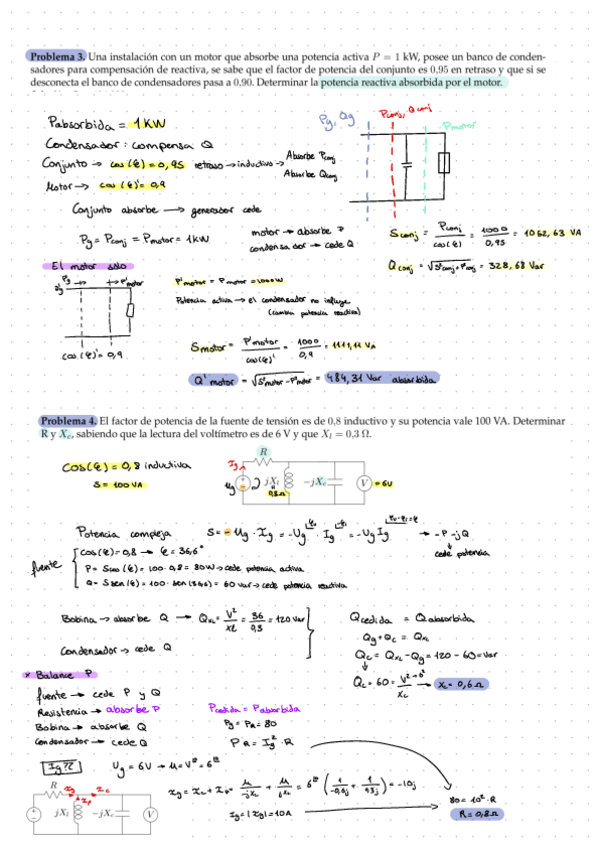 Problema 3. Una instalación con un motor que absorbe una potencia activa P = 1 kW, posee un banco de conden-
sadores para compensación de reactiva, se sabe que el factor de potencia del conjunto es 0,95 en retraso y que si se
desconecta el banco de condensadores pasa a 0,90. Determinar la potencia reactiva absorbida por el motor.
Pabsorbida = 1KW
Condensador: compensa Q
Conjunto → cos(φ) = 0,95 retraso → inductivo →
Absorbe Pconj
Absorbe Qconj
Motor → cos(φ)' = 0,9
Pg, Qg
Pconj, Qconj
Pmotor
Conjunto absorbe → generador cede
Pg = Pconj = Pmotor = 1KW
motor → absorbe P
condensador → cede Q
Sconj = Pconj / cos(φ) = 1000 / 0,95 = 1052,63 VA
Qconj = √S²conj - P²conj = 328,68 Var
El motor solo
P'motor = Pmotor = 1000W
Potencia activa → el condensador no influye
(cambia potencia reactiva)
cos(φ)' = 0,9
Smotor = P'motor / cos(φ)' = 1000 / 0,9 = 1111,11 VA
Q'motor = √S²motor - P²motor = 484,31 Var absorbida
Problema 4. El factor de potencia de la fuente de tensión es de 0,8 inductivo y su potencia vale 100 VA. Determinar
R y Xc, sabiendo que la lectura del voltímetro es de 6 V y que Xl = 0,3 Ω.
cos(φ) = 0,8 inductiva
S = 100 VA
R
Ig
Ug
jXl
-jXc
V = 6V
Potencia compleja
S = - Ug · Ig = -Ug · Ig = -Ug Ig → -P-jQ
cede potencia
fuente
cos(φ) = 0,8 →
P = S cos(φ) = 100 · 0,8 = 80W → cede potencia activa
Q = S sen(φ) = 100 · sen = 60 Var → cede potencia reactiva
Bobina → absorbe Q → QXL = V² / XL = 36 / 0,3 = 120 Var
Condensador → cede Q
Qcedida = Qabsorbida
Qg + Qc = QXL
Qc = QXL - Qg = 120 - 60 = Var
Qc = 60 = V² / Xc → Xc = 0,6 Ω
* Balance P
fuente → cede P y Q
Resistencia → absorbe P
Bobina → absorbe Q
Condensador → cede Q
Pcedida = Pabsorbida
Pg = PR = 80
PR = Ig² · R
Ig??
Ug = 6V →
R
jXl
-jXc
V
= -10j
Ig = |Ig| = 10A
80 = 10² · R
R = 0,8 Ω